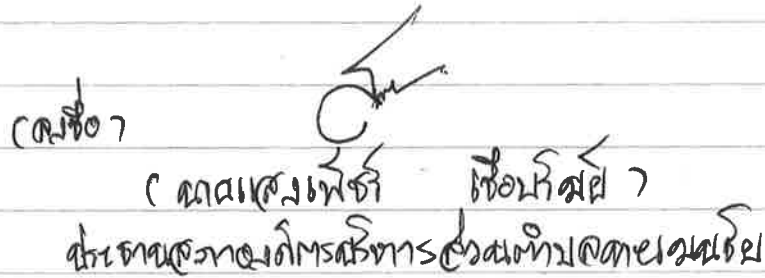 (ลงชื่อ)
(นายแสงเพ็ชร์ เชื้อบ้ำมย์)
ประธานสภาองค์การบริหารส่วนตำบล